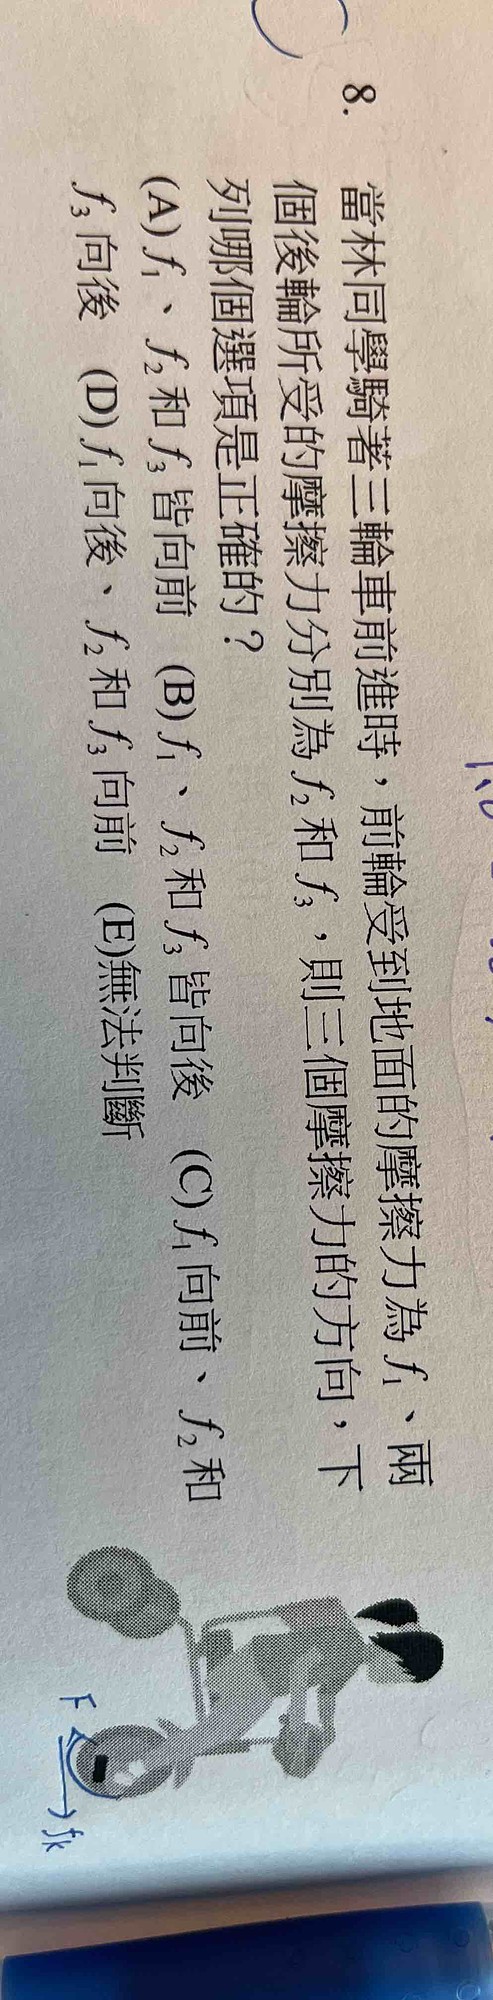 8. 當林同學騎著三輪車前進時，前輪受到地面的摩擦力為 f₁、兩
個後輪所受的摩擦力分別為 f₂ 和 f₃，則三個摩擦力的方向，下
列哪個選項是正確的？
(A) f₁、f₂ 和 f₃ 皆向前 (B) f₁、f₂ 和 f₃ 皆向後 (C) f₁ 向前、f₂ 和
f₃ 向後 (D) f₁ 向後、f₂ 和 f₃ 向前 (E)無法判斷
F
fk